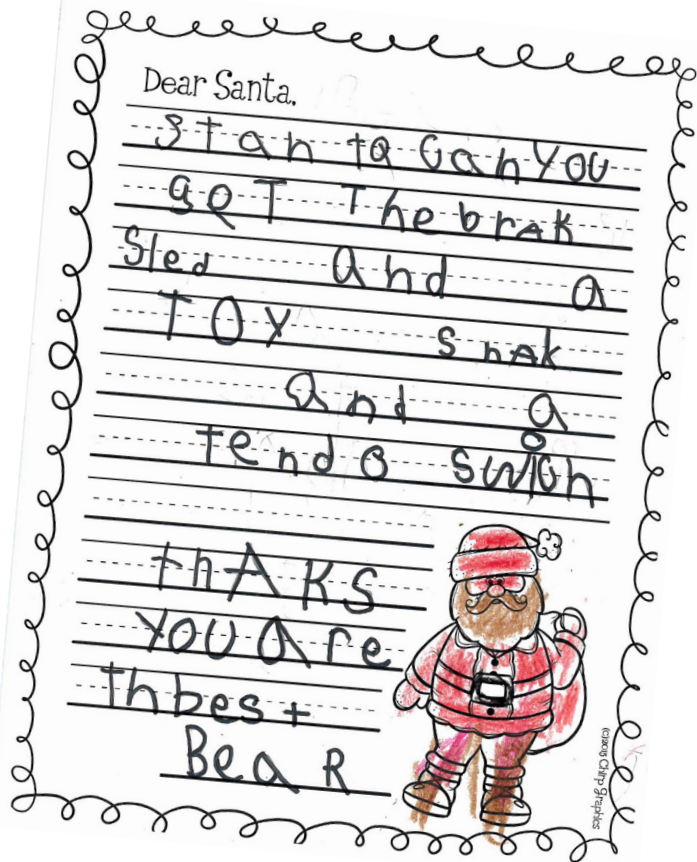 Dear Santa,
Stan ta Can You
geT The brAK
Sled and a
TOY snAk
and a
tendo swich
thAKS
you are
thbest
BeaR
(c)2015 Chirp Graphics